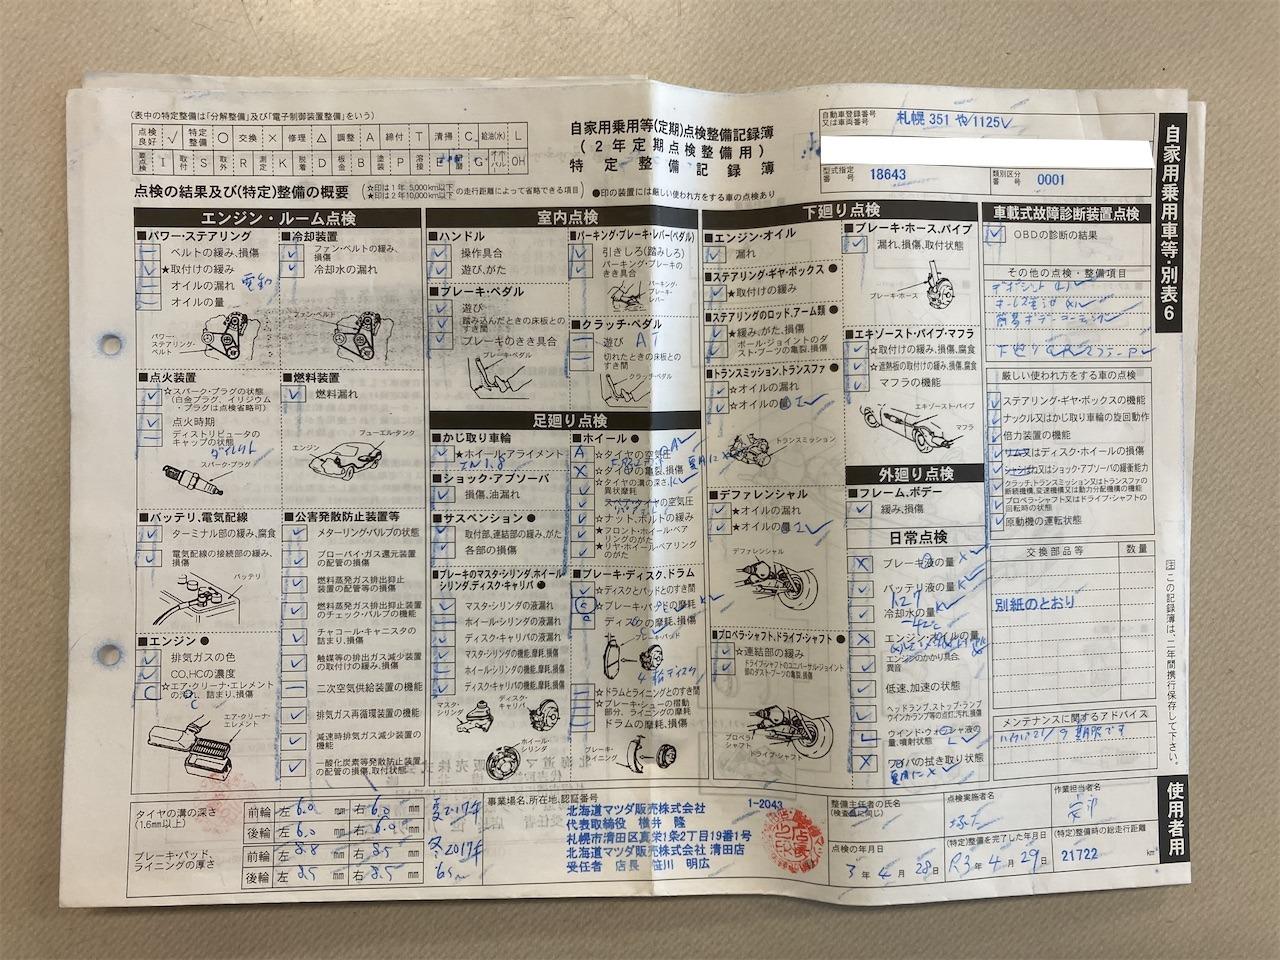 (表中の特定整備は「分解整備」及び「電子制御装置整備」をいう)
点検良好 √ 特定整備 ○ 交換 × 修理 △ 調整 A 締付 T 清掃 C 給油(水) L
要点検 I 取付 S 取外 R 測定 K 脱着 D 板金 B 塗装 P 溶接 OH
自家用乗用等(定期)点検整備記録簿
(2年定期点検整備用)
特定整備記録簿
自動車登録番号
又は車両番号
札幌 351 や/1125
型式指定番号 18643
類別区分番号 0001
点検の結果及び(特定)整備の概要
☆印は1年 5,000km以下
★印は2年 10,000km以下
の走行距離によって省略できる項目
●印の装置には厳しい使われ方をする車の点検あり
エンジン・ルーム点検
■パワー・ステアリング
ベルトの緩み、損傷
★取付けの緩み
オイルの漏れ
オイルの量
電動
パワー・ステアリング・ベルト
■冷却装置
ファン・ベルトの緩み、損傷
冷却水の漏れ
ファン・ベルト
■点火装置
☆スパーク・プラグの状態
(白金プラグ、イリジウム・プラグは点検省略可)
点火時期
ディストリビュータのキャップの状態
ダイレクト
スパーク・プラグ
■燃料装置
燃料漏れ
エンジン
フューエル・タンク
■バッテリ、電気配線
ターミナル部の緩み、腐食
電気配線の接続部の緩み、損傷
バッテリ
■エンジン ●
排気ガスの色
CO,HCの濃度
☆エア・クリーナ・エレメントの汚れ、詰まり、損傷
エア・クリーナ・エレメント
■公害発散防止装置等
メターリング・バルブの状態
ブローバイ・ガス還元装置の配管の損傷
燃料蒸発ガス排出抑止装置の配管等の損傷
燃料蒸発ガス排出抑止装置のチェック・バルブの機能
チャコール・キャニスタの詰まり、損傷
触媒等の排出ガス減少装置の取付けの緩み、損傷
二次空気供給装置の機能
排気ガス再循環装置の機能
減速時排気ガス減少装置の機能
一酸化炭素等発散防止装置の配管の損傷、取付状態
室内点検
■ハンドル
操作具合
遊び、がた
■ブレーキ・ペダル
遊び
踏み込んだときの床板とのすき間
ブレーキのきき具合
ブレーキ・ペダル
■パーキング・ブレーキ・レバー(ペダル)
引きしろ(踏みしろ)
パーキング・ブレーキのきき具合
パーキング・ブレーキ・レバー
■クラッチ・ペダル
遊び AT
切れたときの床板とのすき間
クラッチ・ペダル
足廻り点検
■かじ取り車輪
★ホイール・アライメント
IN 1.8
■ショック・アブソーバ
損傷、油漏れ
■サスペンション ●
取付部、連結部の緩み、がた
各部の損傷
■ブレーキのマスタ・シリンダ、ホイール・シリンダ、ディスク・キャリパ ●
マスタ・シリンダの液漏れ
ホイール・シリンダの液漏れ
ディスク・キャリパの液漏れ
マスタ・シリンダの機能、摩耗、損傷
ホイール・シリンダの機能、摩耗、損傷
ディスク・キャリパの機能、摩耗、損傷
マスタ・シリンダ
ディスク・キャリパ
ホイール・シリンダ
■ホイール ●
☆タイヤの空気圧
☆タイヤの亀裂、損傷
☆タイヤの溝の深さ、異状摩耗
スペア・タイヤの空気圧
☆ナット、ボルトの緩み
★フロント・ホイール・ベアリングのがた
★リヤ・ホイール・ベアリングのがた
■ブレーキ・ディスク、ドラム
☆ディスクとパッドとのすき間
☆ブレーキ・パッドの摩耗
ディスクの摩耗、損傷
ブレーキ・パッド
4輪ディスク
☆ドラムとライニングとのすき間
☆ブレーキ・シューの摺動部分、ライニングの摩耗
ドラムの摩耗、損傷
ブレーキ・ライニング
下廻り点検
■エンジン・オイル
漏れ
■ステアリング・ギヤ・ボックス ●
★取付けの緩み
■ステアリングのロッド、アーム類 ●
★緩み、がた、損傷
ボール・ジョイントのダスト・ブーツの亀裂、損傷
■トランスミッション、トランスファ ●
☆オイルの漏れ
☆オイルの量
トランスミッション
■デファレンシャル
★オイルの漏れ
★オイルの量
デファレンシャル
■プロペラ・シャフト、ドライブ・シャフト ●
☆連結部の緩み
ドライブ・シャフトのユニバーサル・ジョイント部のダスト・ブーツの亀裂、損傷
プロペラ・シャフト
ドライブ・シャフト
■ブレーキ・ホース、パイプ
漏れ、損傷、取付状態
ブレーキ・ホース
■エキゾースト・パイプ、マフラ
☆取付けの緩み、損傷、腐食
☆遮熱板の取付けの緩み、損傷、腐食
マフラの機能
エキゾースト・パイプ
マフラ
外廻り点検
■フレーム、ボデー
緩み、損傷
日常点検
ブレーキ液の量
バッテリ液の量
冷却水の量
-42℃
エンジン・オイルの量
エンジンのかかり具合、異音
低速、加速の状態
ヘッドランプ、ストップ・ランプ、ウインカランプ等の点灯、汚れ、損傷
ウインド・ウォッシャ液の量、噴射状態
ワイパの拭き取り状態
車載式故障診断装置点検
OBDの診断の結果
その他の点検・整備項目
厳しい使われ方をする車の点検
ステアリング・ギヤ・ボックスの機能
ナックル又はかじ取り車輪の旋回動作
倍力装置の機能
リム又はディスク・ホイールの損傷
シャシばね又はショック・アブソーバの緩衝能力
クラッチ、トランスミッション又はトランスファの断続機構、変速機構又は動力分配機構の機能
プロペラ・シャフト又はドライブ・シャフトの回転時の状態
原動機の運転状態
交換部品等 数量
別紙のとおり
メンテナンスに関するアドバイス
自家用乗用車等・別表6
注 この記録簿は、二年間携行保存して下さい。
使用者用
タイヤの溝の深さ
(1.6mm以上)
前輪 左 6.0 mm 右 6.0 mm 夏2017年
後輪 左 6.0 mm 右 6.0 mm
ブレーキ・パッド、ライニングの厚さ
前輪 左 8.8 mm 右 8.5 mm 冬2017年
後輪 左 8.5 mm 右 8.5 mm
事業場名、所在地、認証番号
1-2043
北海道マツダ販売株式会社
代表取締役 横井 隆
札幌市清田区真栄1条2丁目19番1号
北海道マツダ販売株式会社 清田店
受任者 店長 笹川 明広
整備主任者の氏名
(検査員に同じ)
点検実施者名
作業担当者名
点検の年月日
3年 4月 28日
(特定)整備を完了した年月日
R3年 4月 29日
(特定)整備時の総走行距離
21722 km